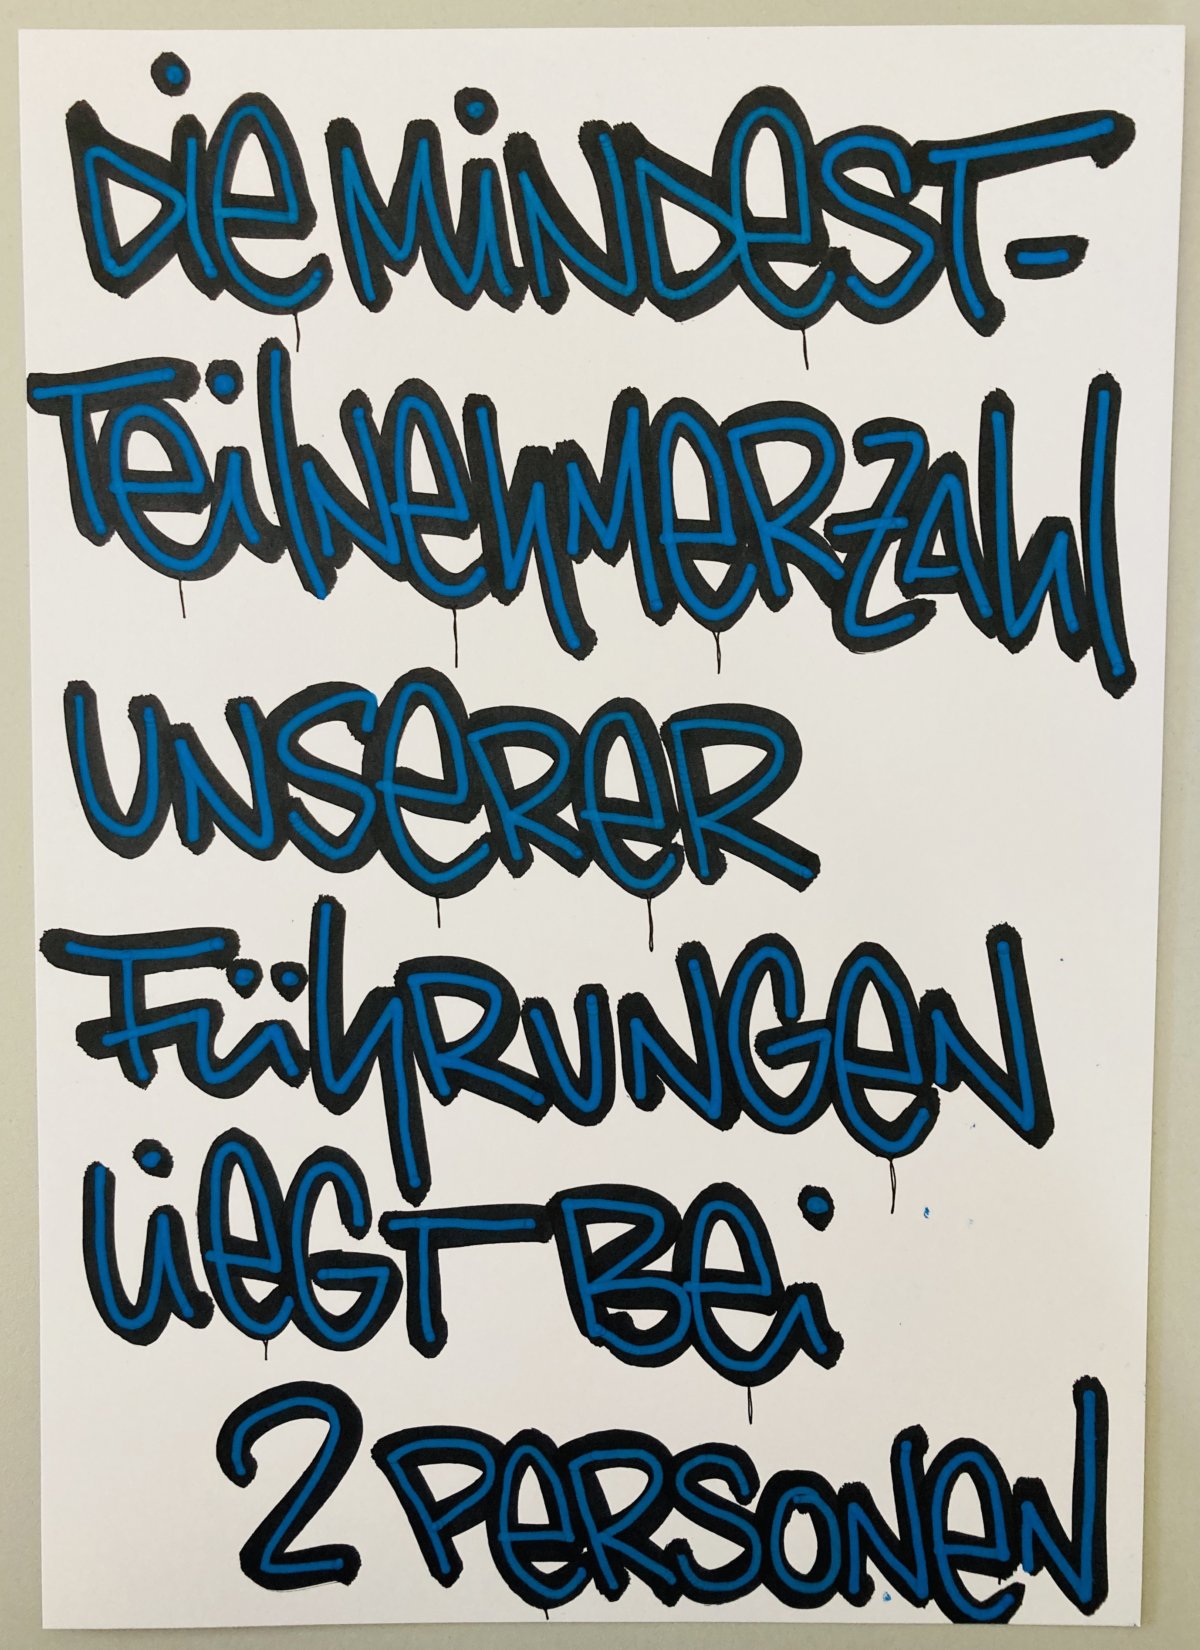 Die Mindest-
teilnehmerzahl
unserer
Führungen
liegt bei
2 Personen